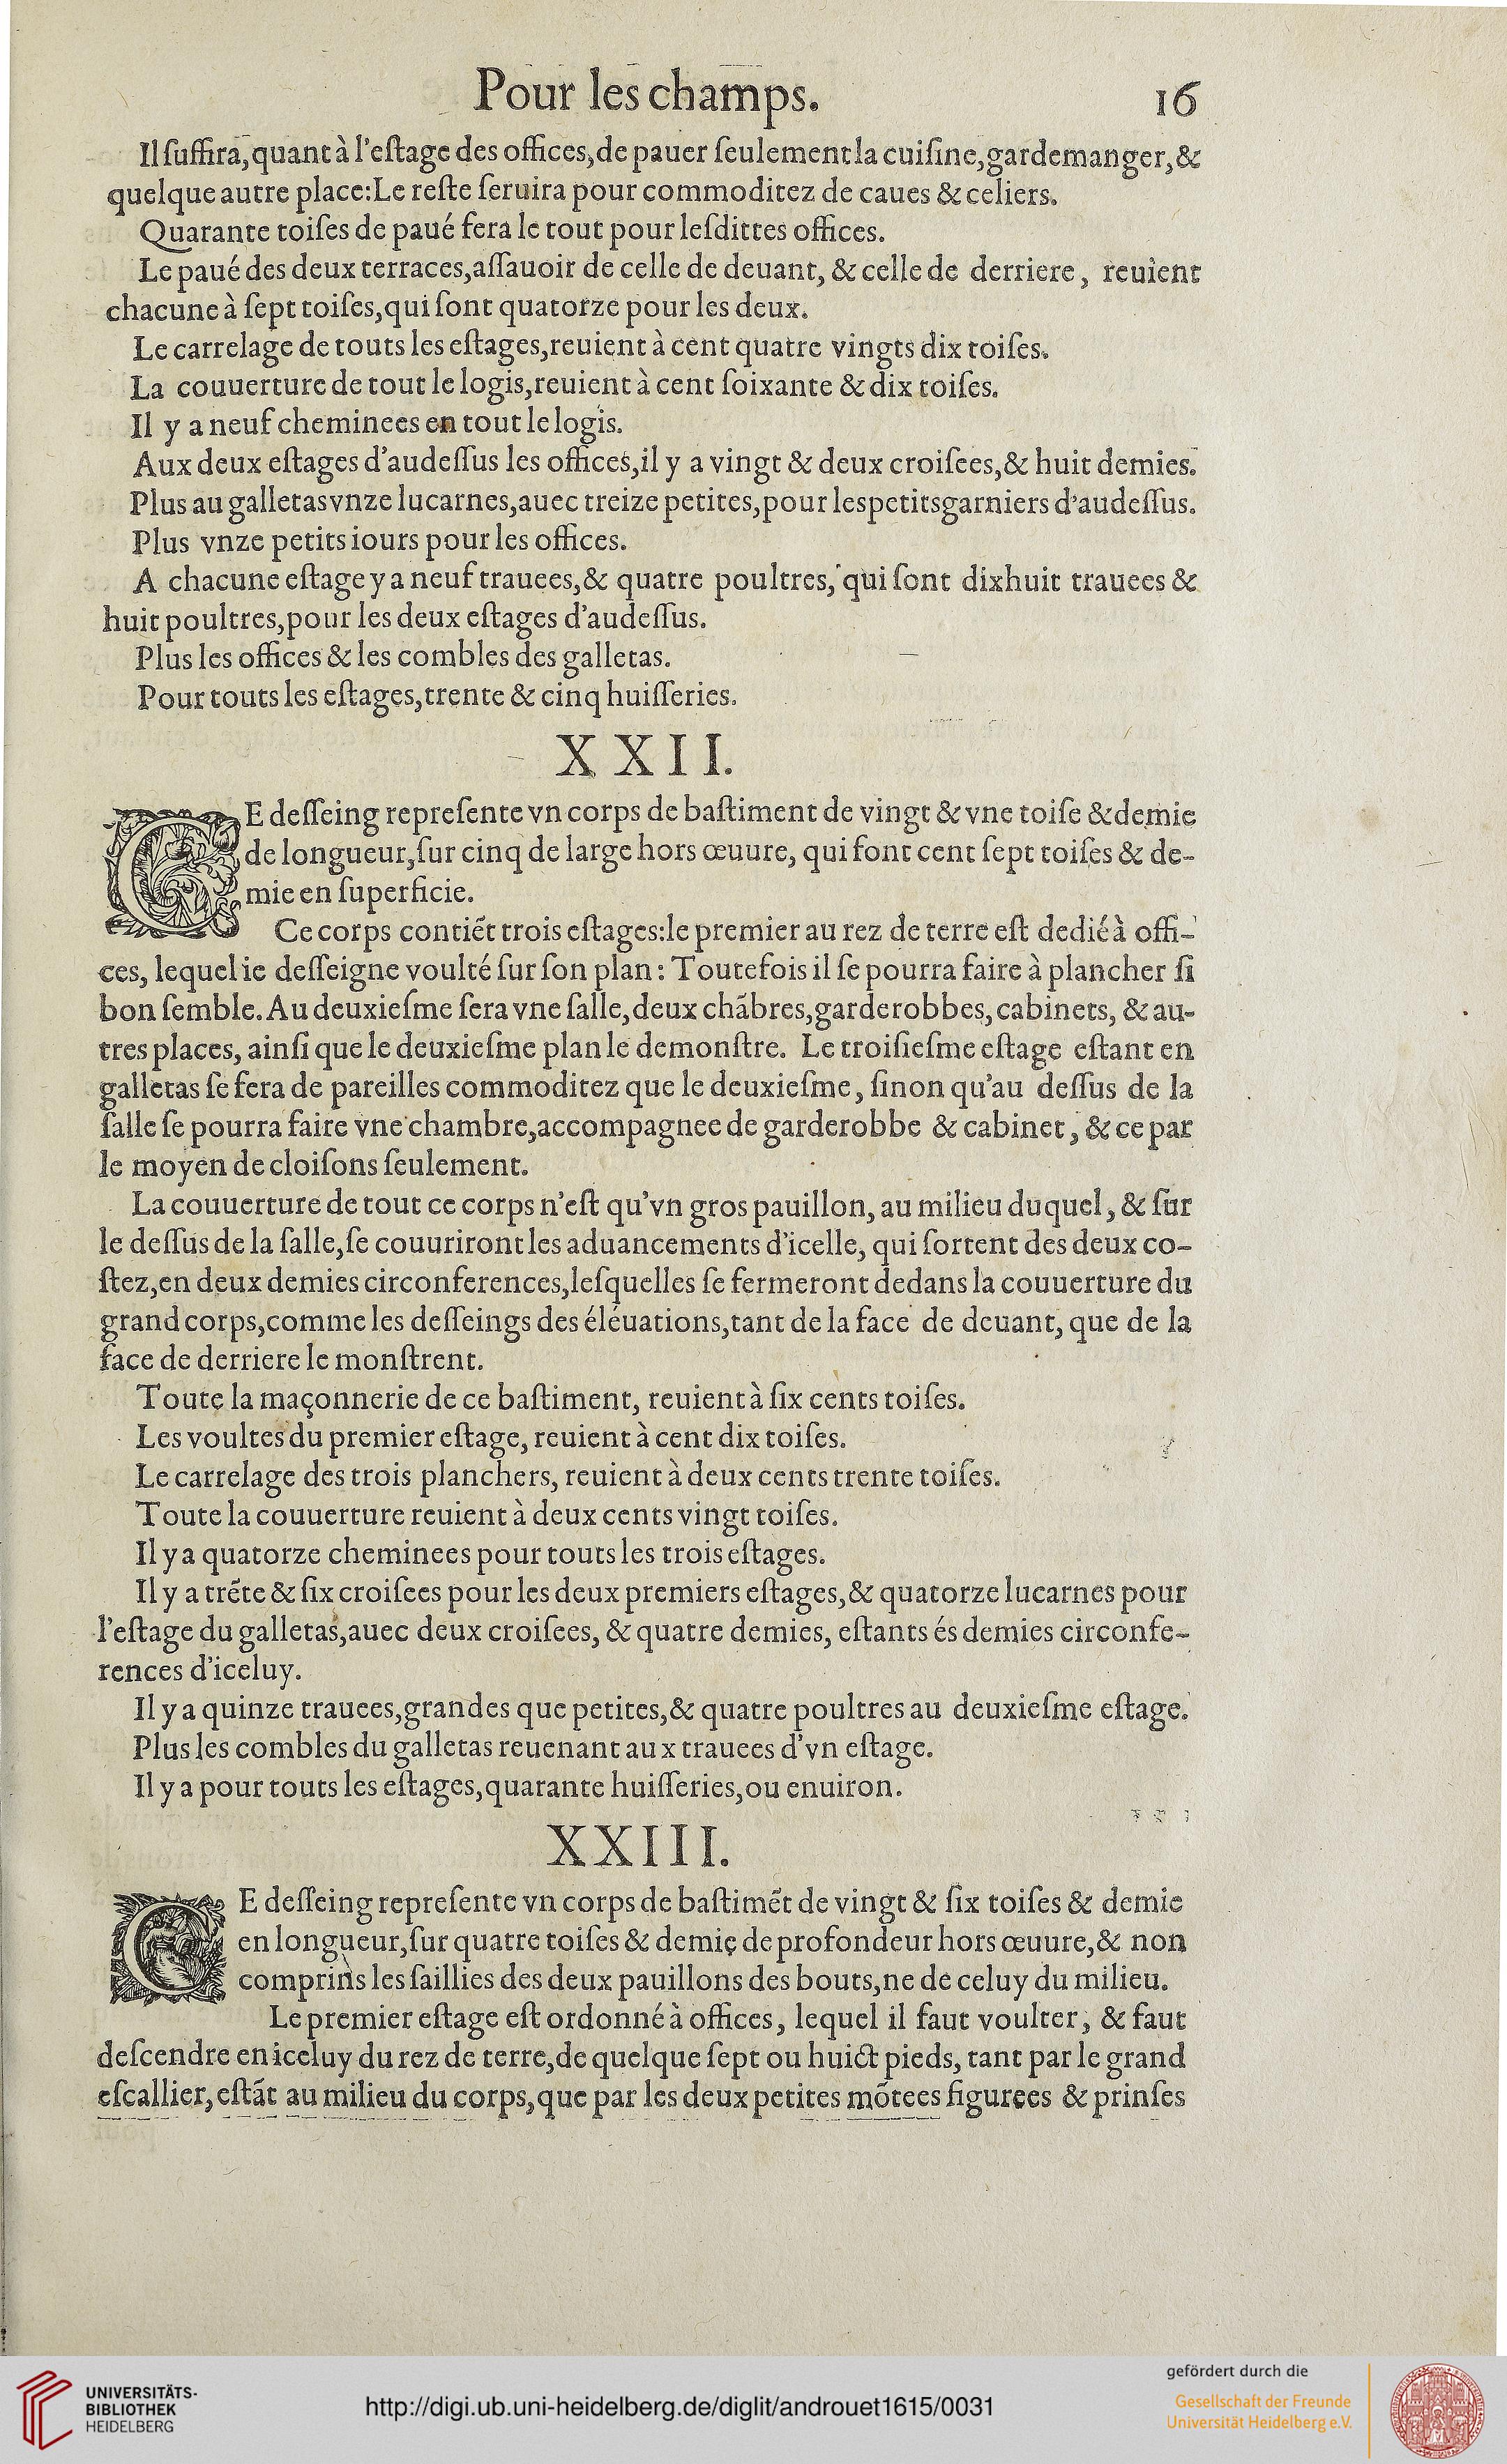 Pour les champs. 16
Il ſuffira, quant à l'eſtage des offices, de pauer ſeulement la cuiſine, gardemanger, &
quelque autre place: Le reſte ſeruira pour commoditez de caues & celiers.
Quarante toiſes de paué fera le tout pour leſdittes offices.
Le paué des deux terraces, aſſauoir de celle de deuant, & celle de derriere, reuient
chacune à ſept toiſes, qui ſont quatorze pour les deux.
Le carrelage de touts les eſtages, reuient à cent quatre vingts dix toiſes.
La couuerture de tout le logis, reuient à cent ſoixante & dix toiſes.
Il y a neuf cheminees en tout le logis.
Aux deux eſtages d'audeſſus les offices, il y a vingt & deux croiſees, & huit demies.
Plus au galletas vnze lucarnes, auec treize petites, pour les petits garniers d'audeſſus.
Plus vnze petits iours pour les offices.
A chacune eſtage y a neuf trauees, & quatre poultres, qui ſont dixhuit trauees &
huit poultres, pour les deux eſtages d'audeſſus.
Plus les offices & les combles des galletas.
Pour touts les eſtages, trente & cinq huiſſeries.
XXII.
CE deſſeing repreſente vn corps de baſtiment de vingt & vne toiſe & demie
de longueur, ſur cinq de large hors œuure, qui font cent ſept toiſes & de-
mie en ſuperficie.
Ce corps contiẽt trois eſtages: le premier au rez de terre eſt dedié à offi-
ces, lequel ie deſſeigne voulté ſur ſon plan: Toutefois il ſe pourra faire à plancher ſi
bon ſemble. Au deuxieſme ſera vne ſalle, deux chãbres, garderobbes, cabinets, & au-
tres places, ainſi que le deuxieſme plan le demonſtre. Le troiſieſme eſtage eſtant en
galletas ſe fera de pareilles commoditez que le deuxieſme, ſinon qu'au deſſus de la
ſalle ſe pourra faire vne chambre, accompagnee de garderobbe & cabinet, & ce par
le moyen de cloiſons ſeulement.
La couuerture de tout ce corps n'eſt qu'vn gros pauillon, au milieu duquel, & ſur
le deſſus de la ſalle, ſe couuriront les aduancements d'icelle, qui ſortent des deux co-
ſtez, en deux demies circonferences, leſquelles ſe fermeront dedans la couuerture du
grand corps, comme les deſſeings des éléuations, tant de la face de deuant, que de la
face de derriere le monſtrent.
Toute la maçonnerie de ce baſtiment, reuient à ſix cents toiſes.
Les voultes du premier eſtage, reuient à cent dix toiſes.
Le carrelage des trois planchers, reuient à deux cents trente toiſes.
Toute la couuerture reuient à deux cents vingt toiſes.
Il y a quatorze cheminees pour touts les trois eſtages.
Il y a trẽte & ſix croiſees pour les deux premiers eſtages, & quatorze lucarnes pour
l'eſtage du galletas, auec deux croiſees, & quatre demies, eſtants és demies circonfe-
rences d'iceluy.
Il y a quinze trauees, grandes que petites, & quatre poultres au deuxieſme eſtage.
Plus les combles du galletas reuenant aux trauees d'vn eſtage.
Il y a pour touts les eſtages, quarante huiſſeries, ou enuiron.
XXIII.
CE deſſeing repreſente vn corps de baſtimẽt de vingt & ſix toiſes & demie
en longueur, ſur quatre toiſes & demie de profondeur hors œuure, & non
comprins les ſaillies des deux pauillons des bouts, ne de celuy du milieu.
Le premier eſtage eſt ordonné à offices, lequel il faut voulter, & faut
deſcendre en iceluy du rez de terre, de quelque ſept ou huict pieds, tant par le grand
eſcallier, eſtãt au milieu du corps, que par les deux petites mõtees figurees & prinſes
UNIVERSITÄTS-
BIBLIOTHEK
HEIDELBERG
http://digi.ub.uni-heidelberg.de/diglit/androuet1615/0031
gefördert durch die
Gesellschaft der Freunde
Universität Heidelberg e.V.